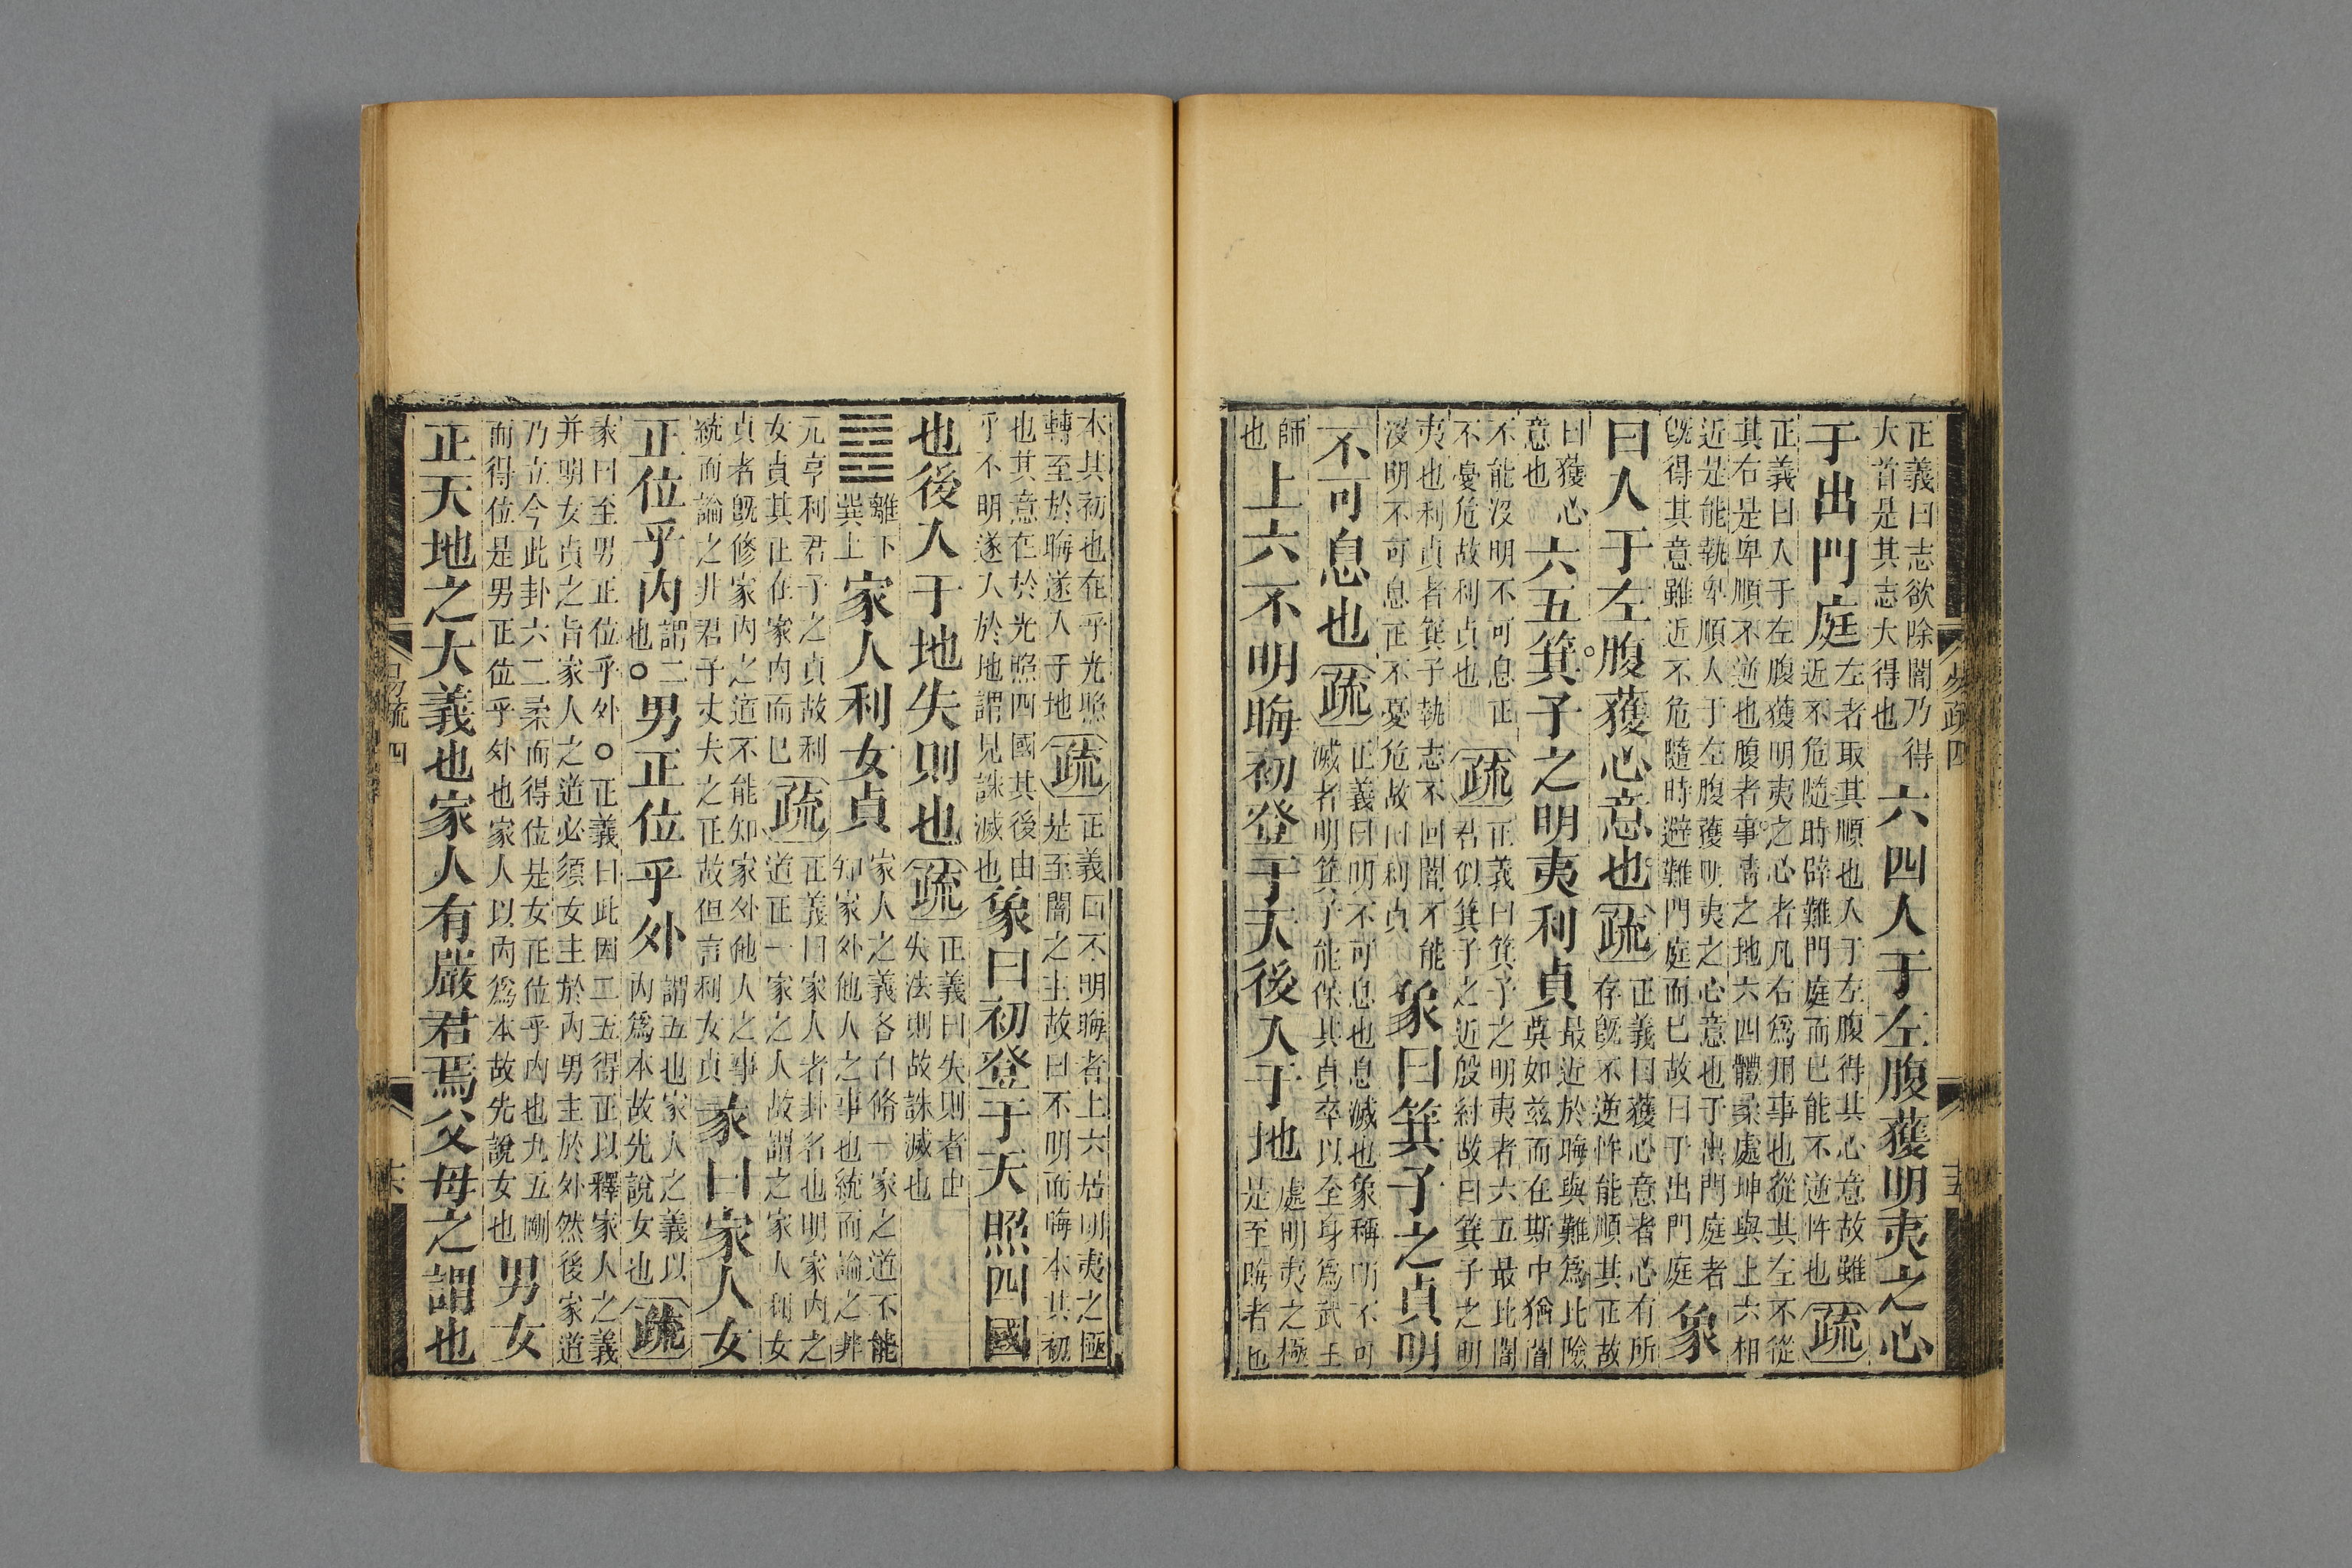 易疏四
正義曰志欲除闇乃得大首是其志大得也六四入于左腹獲明夷之心
于出門庭左者取其順也入于左腹得其心意故雖近不危隨時辟難門庭而已能不逆忤也疏
正義曰入于左腹獲明夷之心者凡右爲用事也從其左不從其右是卑順不逆也腹者事情之地六四體柔處坤與上六相
近是能執卑順入于左腹獲明夷之心意也于出門庭者旣得其意雖近不危隨時避難門庭而已故曰于出門庭象
曰入于左腹獲心意也疏正義曰獲心意者心有所存旣不逆忤能順其正故
曰獲心意也六五箕子之明夷利貞最近於晦與難爲比險莫如茲而在斯中猶闇
不能沒明不可息正不憂危故利貞也疏正義曰箕子之明夷者六五最比闇君似箕子之近殷紂故曰箕子之明
夷也利貞者箕子執志不回闇不能沒明不可息正不憂危故曰利貞象曰箕子之貞明
不可息也疏正義曰明不可息也息滅也象稱明不可滅者明箕子能保其貞卒以全身爲武王
師也上六不明晦初登于天後入于地處明夷之極是至晦者也
本其初也在乎光照轉至於晦遂入于地疏正義曰不明晦者上六居明夷之極是至闇之主故曰不明而晦本其初
也其意在於光照四國其後由乎不明遂入於地謂見誅滅也象曰初登于天照四國
也後入于地失則也疏正義曰失則者由失法則故誅滅也
䷤離下巽上家人利女貞家人之義各自脩一家之道不能知家外他人之事也統而論之非
元亨利君子之貞故利女貞其正在家內而已疏正義曰家人者卦名也明家內之道正一家之人故謂之家人利女
貞者旣修家內之道不能知家外他人之事統而論之非君子丈夫之正故但言利女貞彖曰家人女
正位乎內謂二也○男正位乎外謂五也家人之義以內爲本故先說女也疏
彖曰至男正位乎外○正義曰此因二五得正以釋家人之義并明女貞之旨家人之道必須女主於內男主於外然後家道
乃立今此卦六二柔而得位是女正位乎內也九五剛而得位是男正位乎外也家人以內爲本故先說女也男女
正天地之大義也家人有嚴君焉父母之謂也
易疏四